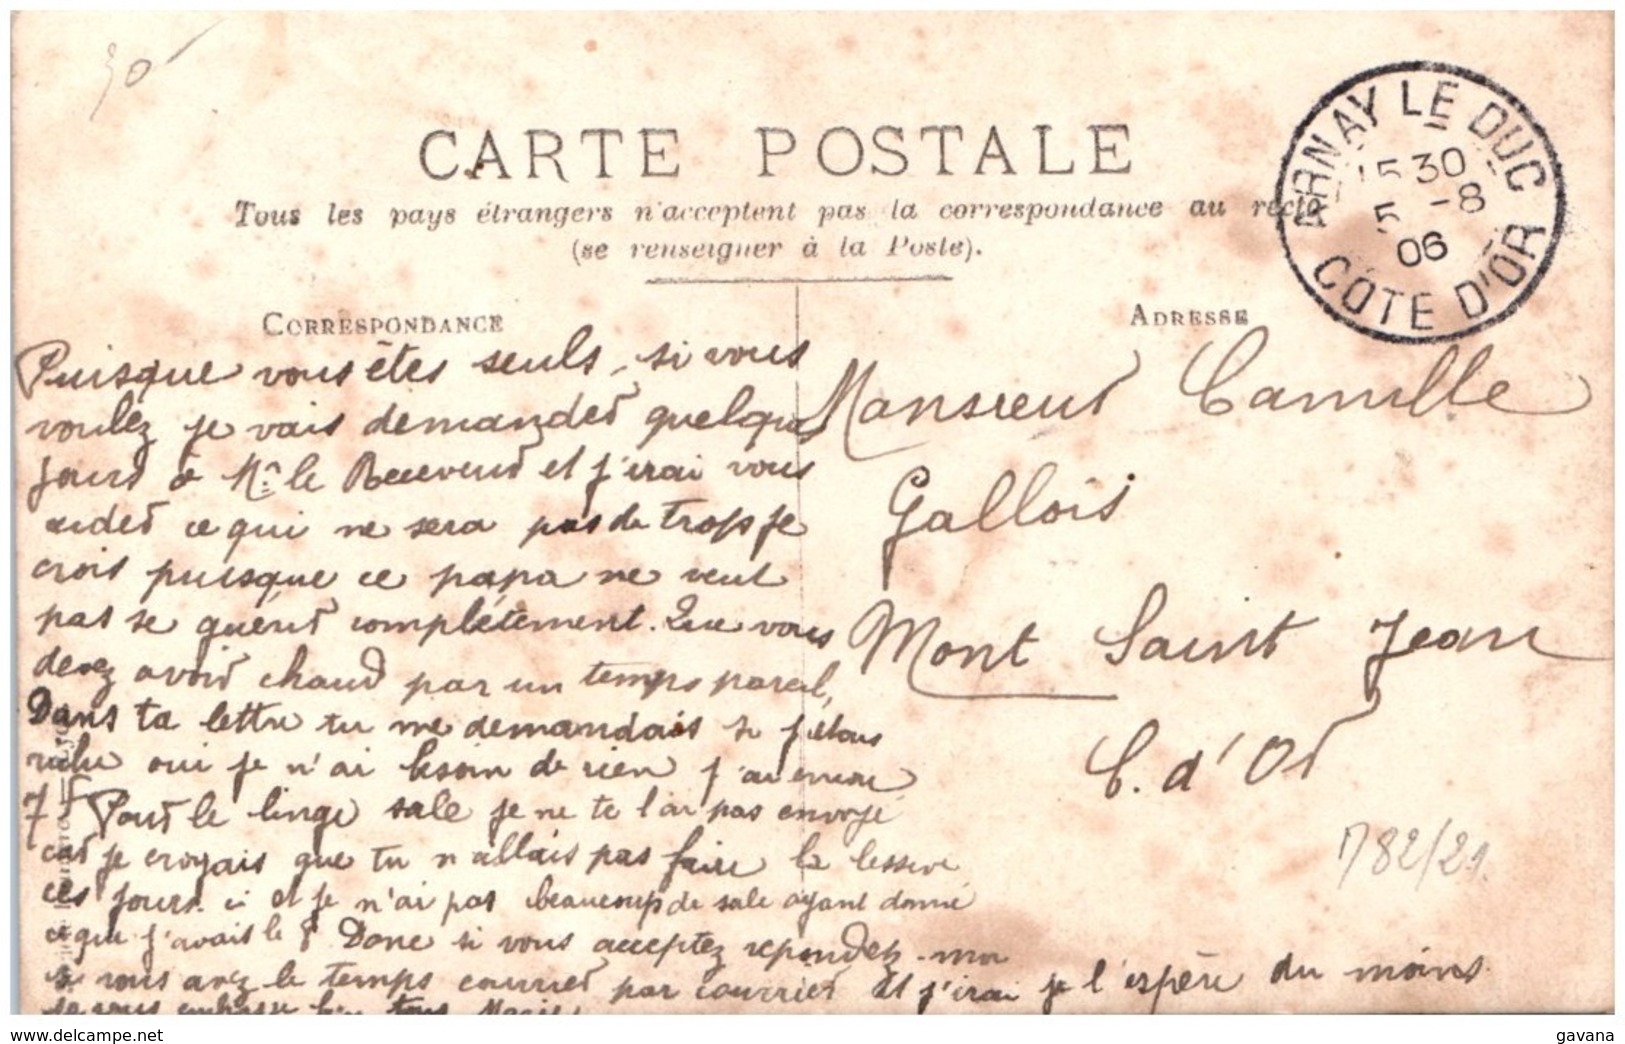 30
CARTE POSTALE
Tous les pays étrangers n'acceptent pas la correspondance au recto
(se renseigner à la Poste).
ARNAY LE DUC
15 30
5 -8
06
CÔTE D'OR
CORRESPONDANCE
Puisque vous êtes seuls, si vous
voulez je vais demander quelques
jours à Mr. le Receveur et j'irai vous
aider ce qui ne sera pas de trop je
crois puisque ce papa ne veut
pas se guérir complètement. Que vous
devez avoir chaud par un temps pareil,
Dans ta lettre tu me demandais si j'étais
riche oui je n'ai besoin de rien j'ai encore
7f Pour le linge sale je ne te l'ai pas envoyé
car je croyais que tu n'allais pas faire la lessive
ces jours-ci et je n'ai pas beaucoup de sale ayant donné
ce que j'avais le 8 Donc si vous acceptez repondez-moi
si vous avez le temps courrier par courrier et j'irai je l'espère du moins
Je vous embrasse bien tous
ADRESSE
Monsieur Camille
Gallois
Mont Saint Jean
C. d'Or
782/21.
gavana